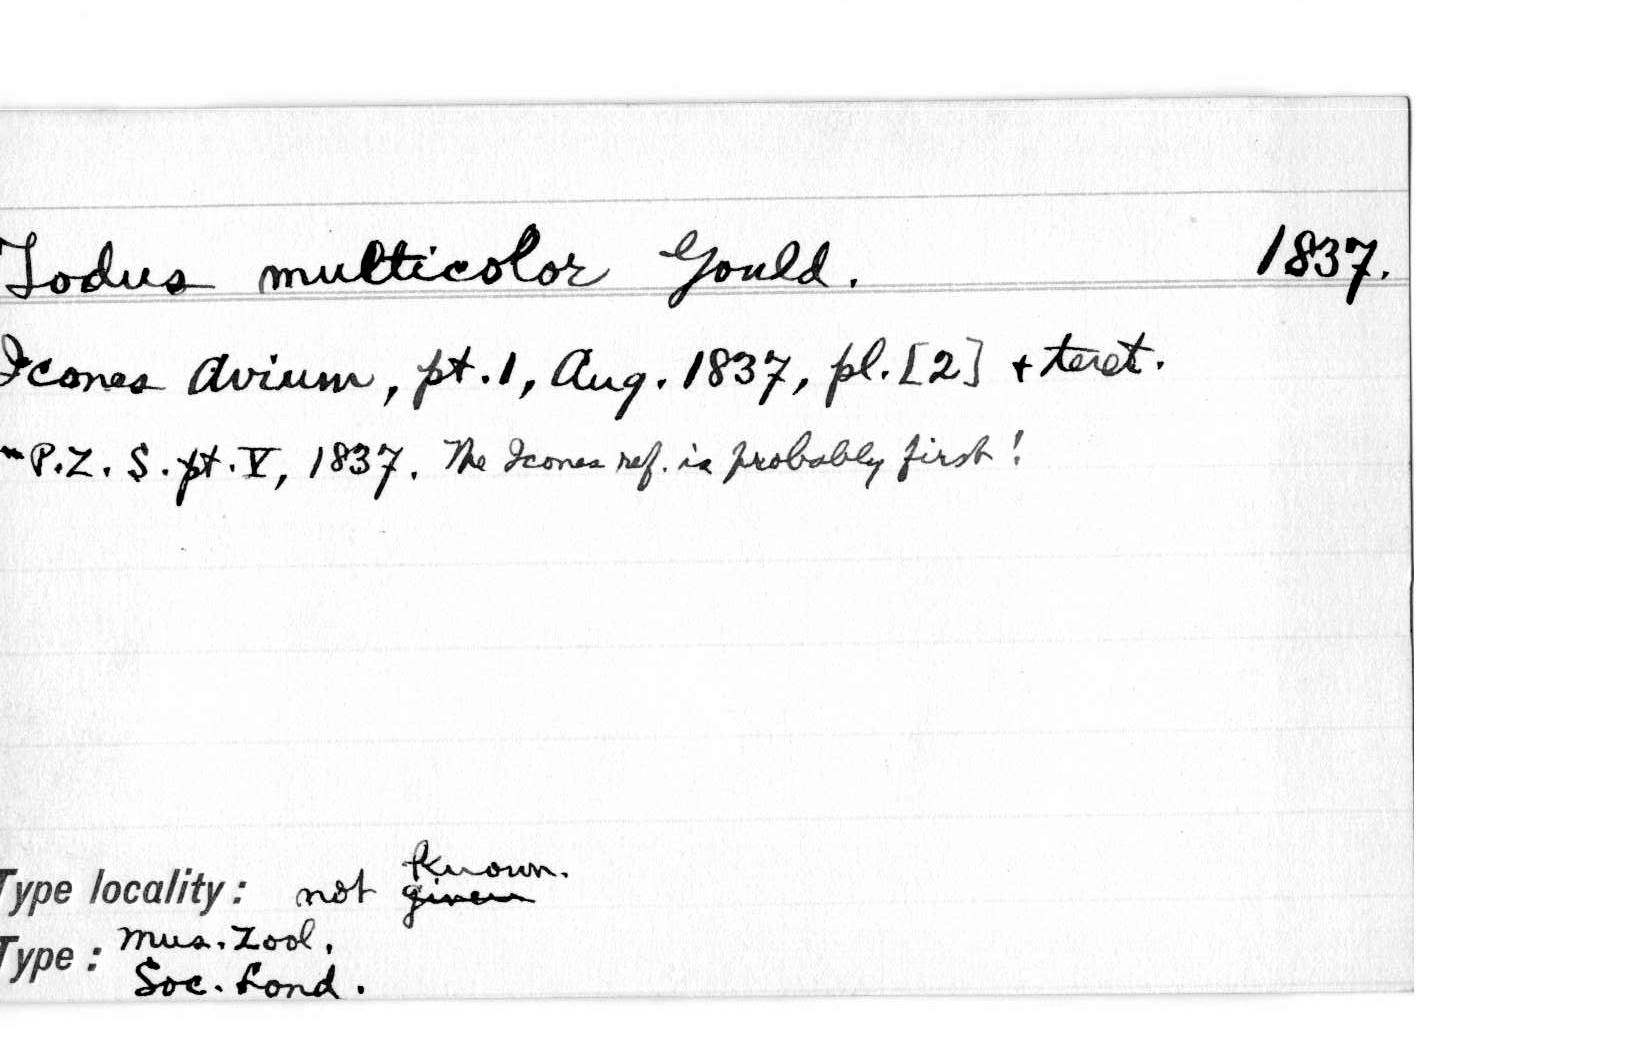 Todus multicolor Gould. 1837.
Icones avium, pt. 1, Aug. 1837, pl. [2] + teret.
P. Z. S. pt. V, 1837. The Icones ref. is probably first!
known.
Type locality: not given
Type: Mus. Zool.
Soc. Lond.